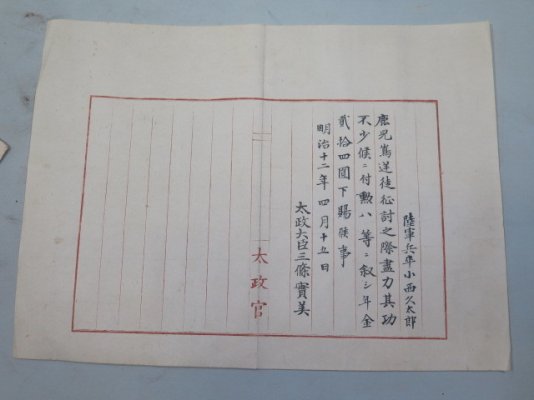 陸軍兵卒小西久太郎
鹿児島逆徒征討之際盡力其功
不少候ニ付勲八等ニ叙シ年金
貳拾四圓下賜候事
明治十二年四月十五日
太政大臣三條實美
太政官